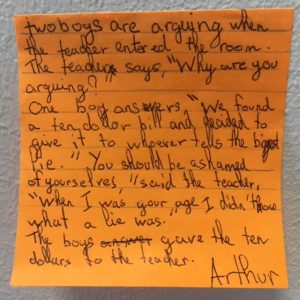 two boys are arguing when
the teacher entered the room.
The teacher says, "Why are you
arguing?"
One boy answers, "We found
a ten dollar bill and decided to
give it to whoever tells the biggest
lie." "You should be ashamed
of yourselves," said the teacher,
"When I was your age I didn't know
what a lie was."
The boys answer gave the ten
dollars to the teacher.
Arthur